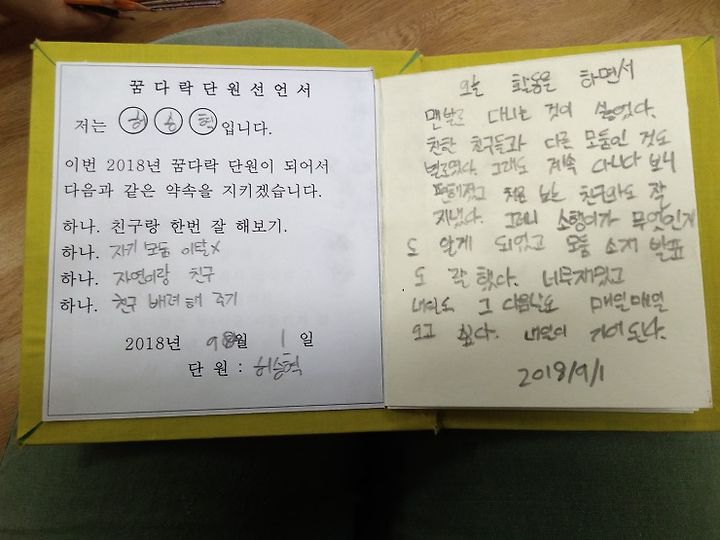 꿈다락단원선언서
저는 허 승 혁 입니다.
이번 2018년 꿈다락 단원이 되어서
다음과 같은 약속을 지키겠습니다.
하나. 친구랑 한번 잘 해보기.
하나. 자기 모둠 이탈X
하나. 자연이랑 친구
하나. 친구 배려해 주기
2018년 9월 1일
단 원 : 허승혁
오늘 활동을 하면서
맨발로 다니는 것이 싫었다.
친한 친구들과 다른 모둠인 것도
별로였다. 그래도 계속 다니다 보니
편해졌고 처음 보는 친구와도 잘
지냈다. 그러니 소행이가 무엇인지
도 알게 되었고 모둠 소개 발표
도 잘 했다. 너무재밌고
내일도 그 다음날도 매일매일
오고 싶다. 내일이 기대된다.
2018/9/1